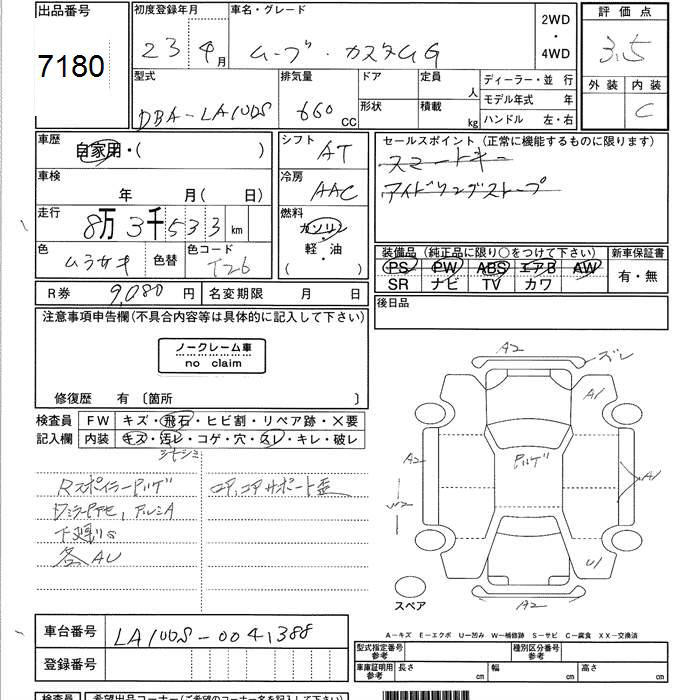 出品番号
7180
初度登録年月
23 4月
車名・グレード
ムーブ・カスタムG
2WD
・
4WD
評価点
3.5
外装 内装
C
型式
DBA-LA100S
排気量
660 cc
ドア
形状
定員 人
積載 kg
ディーラー・並 行
モデル年式 年
ハンドル 左・右
車歴
自家用・( )
車検
年 月( 日)
走行
8万3千533km
色
ムラサキ
色替
色コード
T26
シフト
AT
冷房
AAC
燃料
ガソリン
軽・油
( )
セールスポイント(正常に機能するものに限ります)
スマートキー
アイドリングストップ
装備品(純正品に限り○をつけて下さい)
PS PW ABS エアB AW
SR ナビ TV カワ
新車保証書
有・無
R券 9,080円
名変期限 月 日
後日品
注意事項申告欄(不具合内容等は具体的に記入して下さい)
ノークレーム車
no claim
修復歴 有〔箇所 〕
検査員
記入欄
FW キズ・飛石・ヒビ割・リペア跡・×要
内装 キズ・汚レ・コゲ・穴・スレ・キレ・破レ
Rスポイラーハゲ
コア,コアサポート歪
アルミA
下廻りS
各AU
A2
ズレ
A1
A2
ハゲ
A1
U1
A2
スペア
A-キズ E-エクボ U-凹み W-補修跡 S-サビ C-腐食 XX-交換済
車台番号 LA100S-0041388
登録番号
型式指定番号
参考
種別区分番号
参考
車庫証明用
参考
長さ cm 幅 cm 高さ cm
検査員
希望出品コーナー(ご希望のコーナー名を記入下さい)